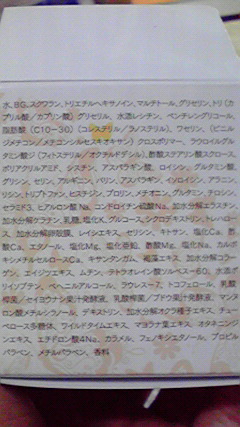 水、BG、スクワラン、トリエチルヘキサノイン、マルチトール、グリセリン、トリ(カ
プリル酸/カプリン酸)グリセリル、水添レシチン、ペンチレングリコール、
脂肪酸(C10-30)(コレステリル/ラノステリル)、ワセリン、(ビニル
ジメチコン/メチコンシルセスキオキサン)クロスポリマー、ラウロイルグル
タミン酸ジ(フィトステリル/オクチルドデシル)、酢酸ステアリン酸スクロース、
ポリアクリルアミド、シスチン、アスパラギン酸、ロイシン、グルタミン酸、
グリシン、セリン、アルギニン、バリン、アスパラギン、イソロイシン、アラ
ニン、トリプトファン、ヒスチジン、プロリン、メチオニン、グルタミン、チロシン、
セラミド3、ヒアルロン酸Na、コンドロイチン硫酸Na、加水分解エラスチン、
加水分解ケラチン、乳糖、塩化K、グルコース、シクロデキストリン、トレハロー
ス、加水分解卵殻膜、レイシエキス、セリシン、キトサン、塩化Ca、酢
酸Ca、エタノール、塩化Mg、塩化亜鉛、酢酸Mg、塩化Na、カルボ
キシメチルセルロースCa、キサンタンガム、褐藻エキス、加水分解コラー
ゲン、エイジツエキス、ムチン、テトラオレイン酸ソルベス-60、水添ポ
リイソブテン、ベヘニルアルコール、ラウレス-7、トコフェロール、乳酸
桿菌/セイヨウナシ果汁発酵液、乳酸桿菌/ブドウ果汁発酵液、マンヌ
ロン酸メチルシラノール、デキストリン、加水分解オクラ種子エキス、チュー
ベロース多糖体、ワイルドタイムエキス、マヨラナ葉エキス、オタネニンジ
ンエキス、エチドロン酸4Na、カラメル、フェノキシエタノール、プロピル
パラベン、メチルパラベン、香料